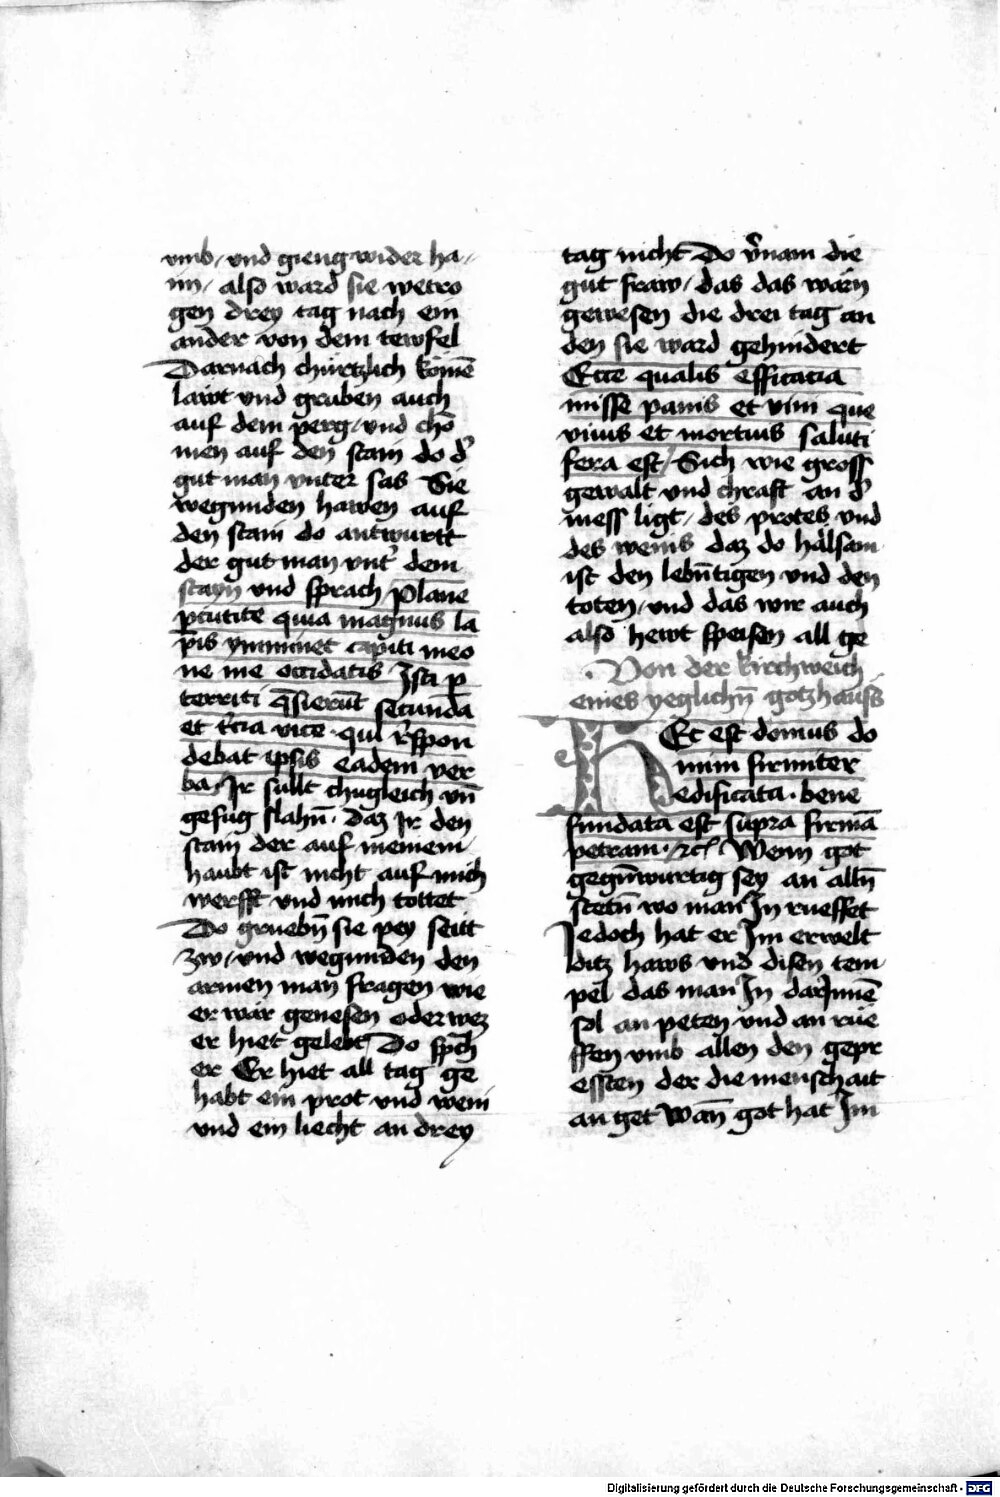 vmb / vnd gieng wider ha /
im / also ward sie wetro
gen drey tag nach ein
ander von dem tewfel
Darnach chürtzlich komē
lawt vnd gruben auch
auf dem perg / vnd cho
men auf den stain do dʾ
gut man vnter sas Sie
wegunden hawen auf
den stain do antwurtt
der gut man vntʾ dem
stayn vnd sprach plane
pcutite quia magnus la
pis ymminet capiti meo
ne me occidatis Isti p
territi q̄sierūt secunda
et tʾcia vice · qui rʾspon
debat ipsis eadem ver
ba · Ir sullt chugleich vn̄
gefüg slahn̄ · Daz Ir den
stain der auf meinem
haubt ist nicht auf mich
werfft vnd mich tottet
Do gruebn̄ sie pey seitt
zw / vnd wegunden den
armen man fragen wie
er wär genesen oder wez
er hiet gelebt Do spch̄
er Er hiet all tag ge
habt ein prot vnd wein
vnd ein liecht an drey
tag nicht Do vʾnam die
gut fraw / das das wärn
gewesen die drei tag an
den sie ward gehindert
Ecce qualis efficacia
misse panis et vini que
viuis et mortuis saluti
fera est / Sich wie gross
gewalt vnd chraft an dʾ
mess ligt / des protes vnd
des weins daz do hailsam
ist den lebn̄tigen vnd den
toten / vnd das wir auch
also hewt speisen all ge
· Von der kirchweich
eines yeglichn̄ gotzhauss
HEc est domus do
mini firmiter
edificata · bene
fundata est supra firmā
petram · zc̄ Wenn got
gegn̄wurtig sey an alln̄
stetn̄ wo man In rueffet
Jedoch hat er Im erwelt
ditz haws vnd disen tem
pel das man In darInnē
sol an peten vnd an rue
ffen vmb allen den gepr
essten der die menschait
an get Wan̄ got hat Im
Digitalisierung gefördert durch die Deutsche Forschungsgemeinschaft - DFG